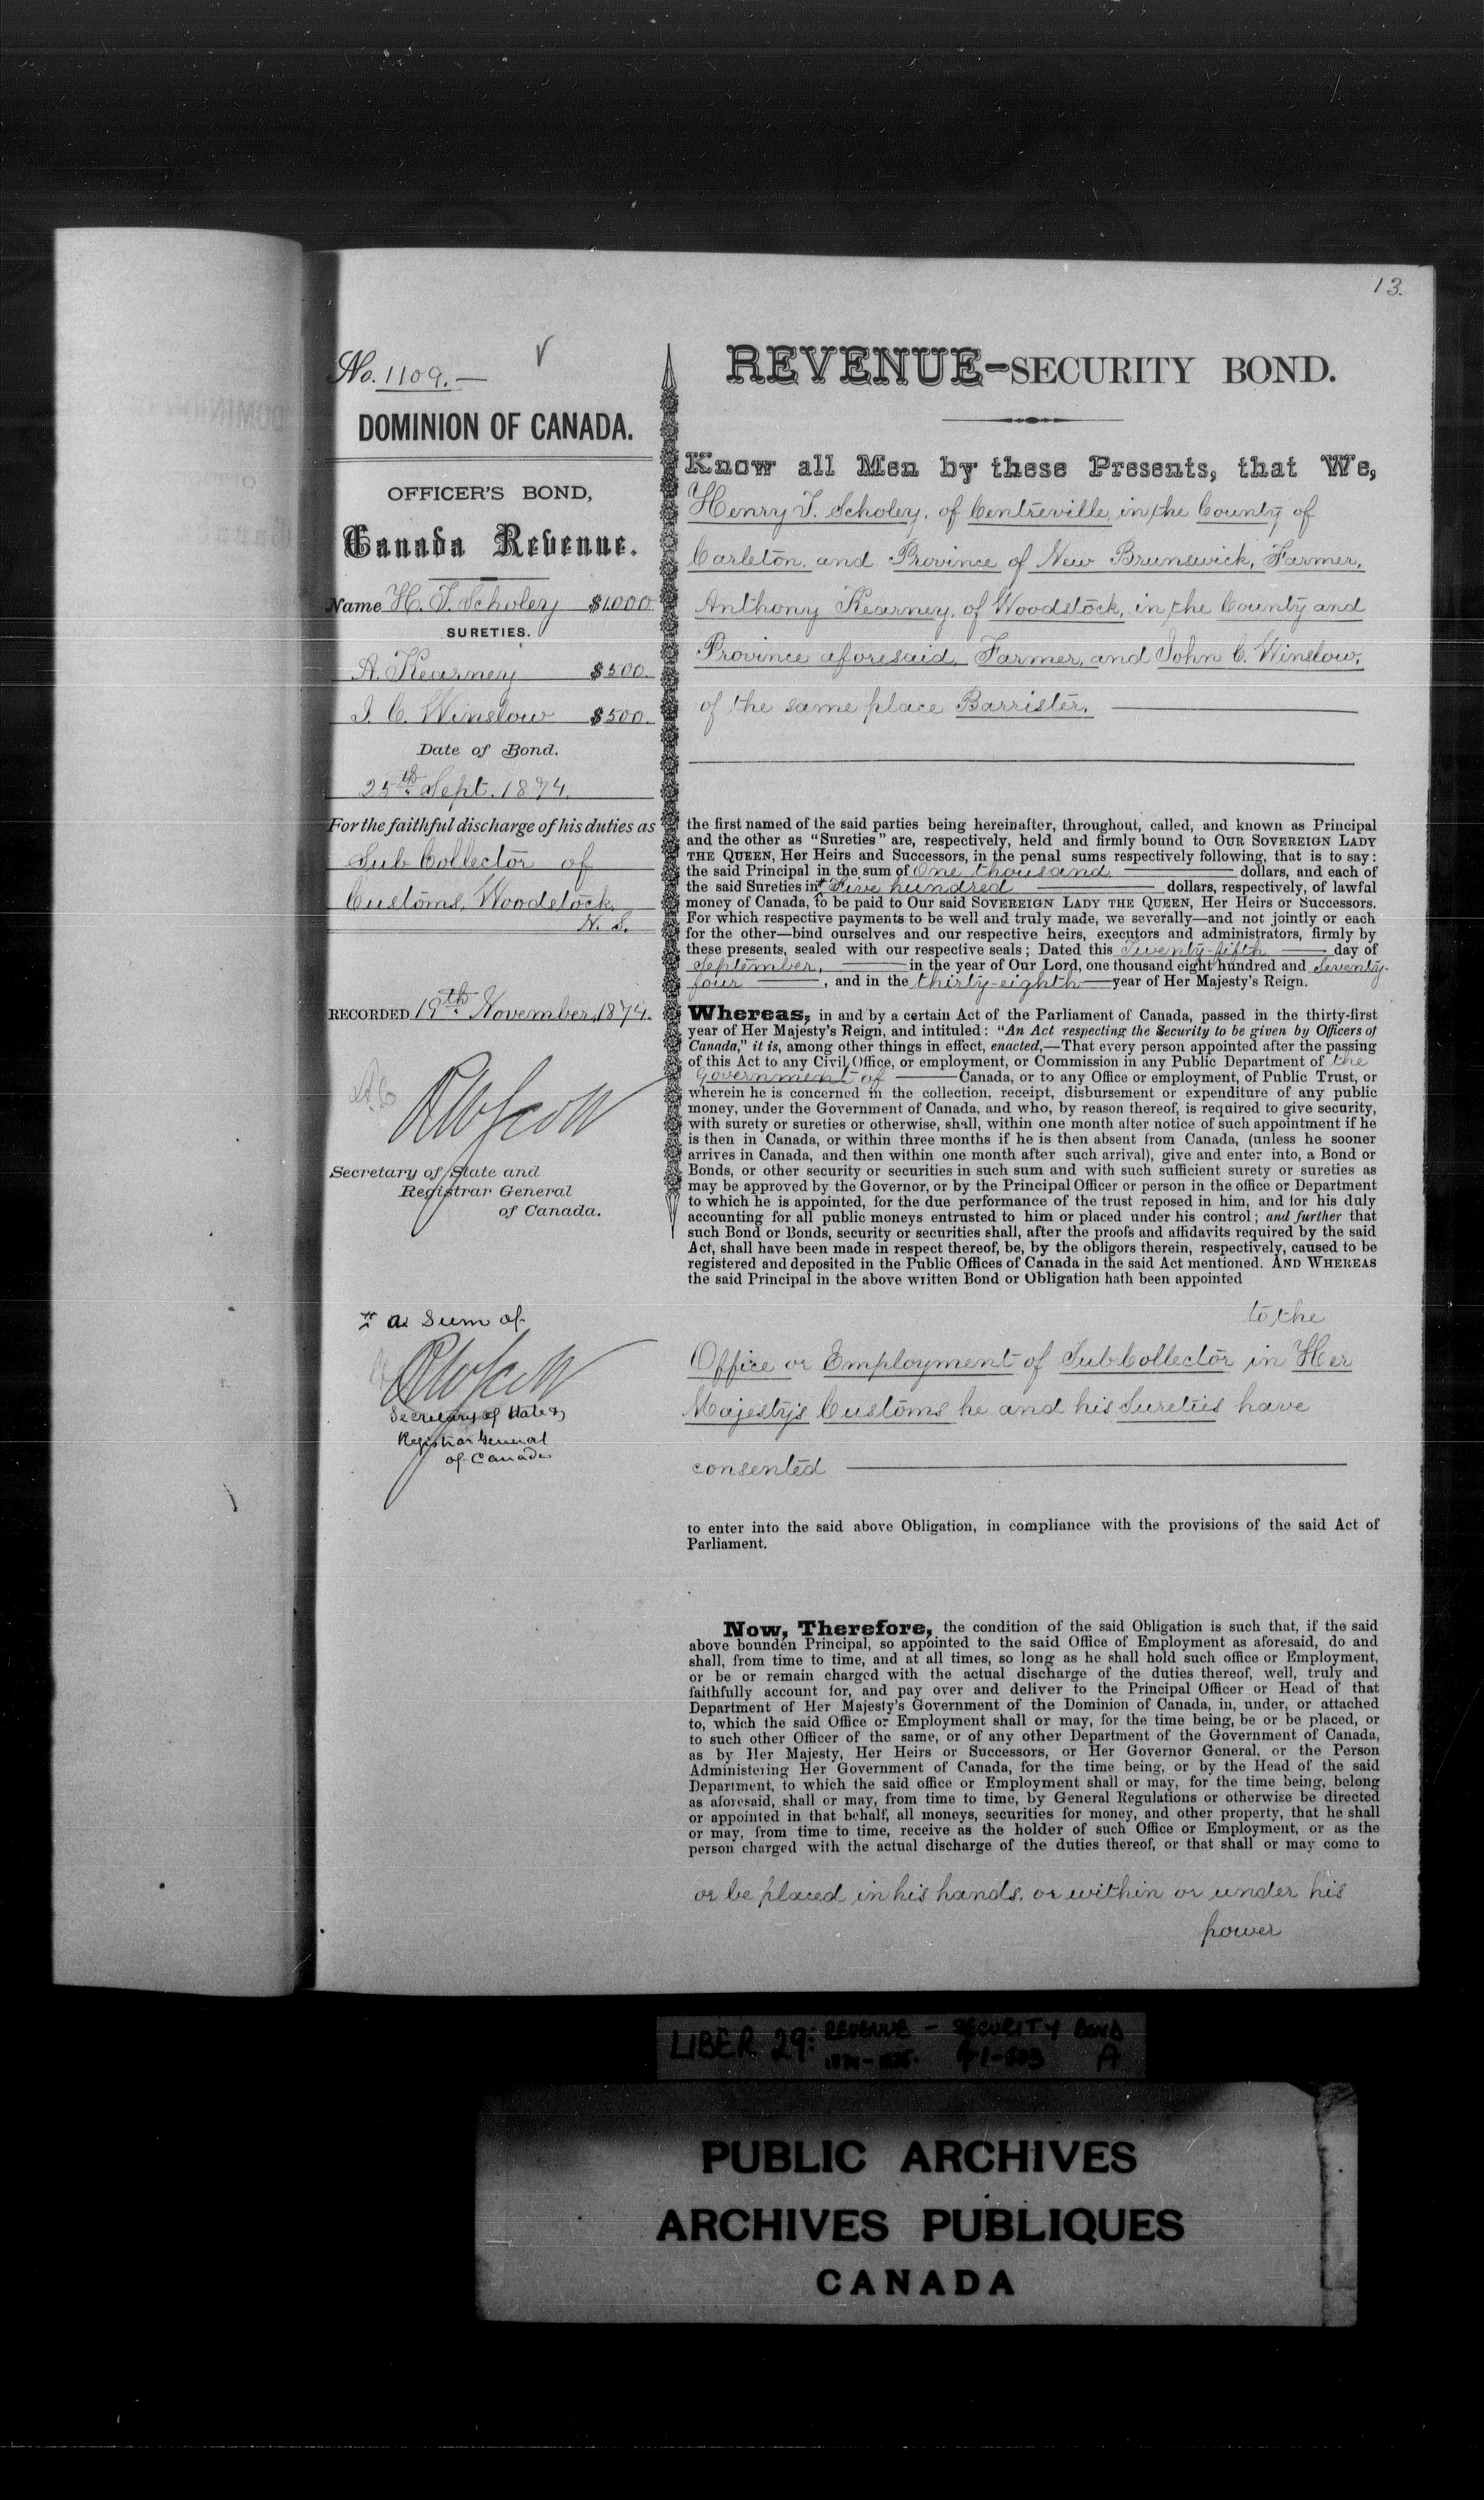 13.
No. 1109.—
DOMINION OF CANADA.
OFFICER'S BOND,
Canada Revenue.
Name H. T. Scholey $1000
SURETIES.
A. Kearney $500.
J. C. Winslow $500.
Date of Bond.
25th Sept. 1874.
For the faithful discharge of his duties as
Sub Collector of
Customs, Woodstock,
N. S.
RECORDED 19th November, 1874.
RWScott
Secretary of State and
Registrar General
of Canada.
a Sum of
RWScott
Secretary of State &
Registrar General
of Canada
REVENUE-SECURITY BOND.
Know all Men by these Presents, that We,
Henry T. Scholey, of Centreville, in the County of
Carleton, and Province of New Brunswick, Farmer,
Anthony Kearney, of Woodstock, in the County and
Province aforesaid, Farmer, and John C. Winslow,
of the same place Barrister,
the first named of the said parties being hereinafter, throughout, called, and known as Principal
and the other as "Sureties" are, respectively, held and firmly bound to OUR SOVEREIGN LADY
THE QUEEN, Her Heirs and Successors, in the penal sums respectively following, that is to say:
the said Principal in the sum of One thousand dollars, and each of
the said Sureties in Five hundred dollars, respectively, of lawful
money of Canada, to be paid to Our said SOVEREIGN LADY THE QUEEN, Her Heirs or Successors.
For which respective payments to be well and truly made, we severally—and not jointly or each
for the other—bind ourselves and our respective heirs, executors and administrators, firmly by
these presents, sealed with our respective seals; Dated this Twenty-fifth day of
September, in the year of Our Lord, one thousand eight hundred and Seventy-
four, and in the thirty-eighth year of Her Majesty's Reign.
Whereas, in and by a certain Act of the Parliament of Canada, passed in the thirty-first
year of Her Majesty's Reign, and intituled: "An Act respecting the Security to be given by Officers of
Canada," it is, among other things in effect, enacted,—That every person appointed after the passing
of this Act to any Civil Office, or employment, or Commission in any Public Department of the
Government of Canada, or to any Office or employment, of Public Trust, or
wherein he is concerned in the collection, receipt, disbursement or expenditure of any public
money, under the Government of Canada, and who, by reason thereof, is required to give security,
with surety or sureties or otherwise, shall, within one month after notice of such appointment if he
is then in Canada, or within three months if he is then absent from Canada, (unless he sooner
arrives in Canada, and then within one month after such arrival), give and enter into, a Bond or
Bonds, or other security or securities in such sum and with such sufficient surety or sureties as
may be approved by the Governor, or by the Principal Officer or person in the office or Department
to which he is appointed, for the due performance of the trust reposed in him, and for his duly
accounting for all public moneys entrusted to him or placed under his control; and further that
such Bond or Bonds, security or securities shall, after the proofs and affidavits required by the said
Act, shall have been made in respect thereof, be, by the obligors therein, respectively, caused to be
registered and deposited in the Public Offices of Canada in the said Act mentioned. AND WHEREAS
the said Principal in the above written Bond or Obligation hath been appointed
to the
Office or Employment of Sub Collector in Her
Majesty's Customs he and his Sureties have
consented
to enter into the said above Obligation, in compliance with the provisions of the said Act of
Parliament.
Now, Therefore, the condition of the said Obligation is such that, if the said
above bounden Principal, so appointed to the said Office of Employment as aforesaid, do and
shall, from time to time, and at all times, so long as he shall hold such office or Employment,
or be or remain charged with the actual discharge of the duties thereof, well, truly and
faithfully account for, and pay over and deliver to the Principal Officer or Head of that
Department of Her Majesty's Government of the Dominion of Canada, in, under, or attached
to, which the said Office or Employment shall or may, for the time being, be or be placed, or
to such other Officer of the same, or of any other Department of the Government of Canada,
as by Her Majesty, Her Heirs or Successors, or Her Governor General, or the Person
Administering Her Government of Canada, for the time being, or by the Head of the said
Department, to which the said office or Employment shall or may, for the time being, belong
as aforesaid, shall or may, from time to time, by General Regulations or otherwise be directed
or appointed in that behalf, all moneys, securities for money, and other property, that he shall
or may, from time to time, receive as the holder of such Office or Employment, or as the
person charged with the actual discharge of the duties thereof, or that shall or may come to
or be placed in his hands, or within or under his
power
LIBER 29: REVENUE - SECURITY BOND
A
PUBLIC ARCHIVES
ARCHIVES PUBLIQUES
CANADA